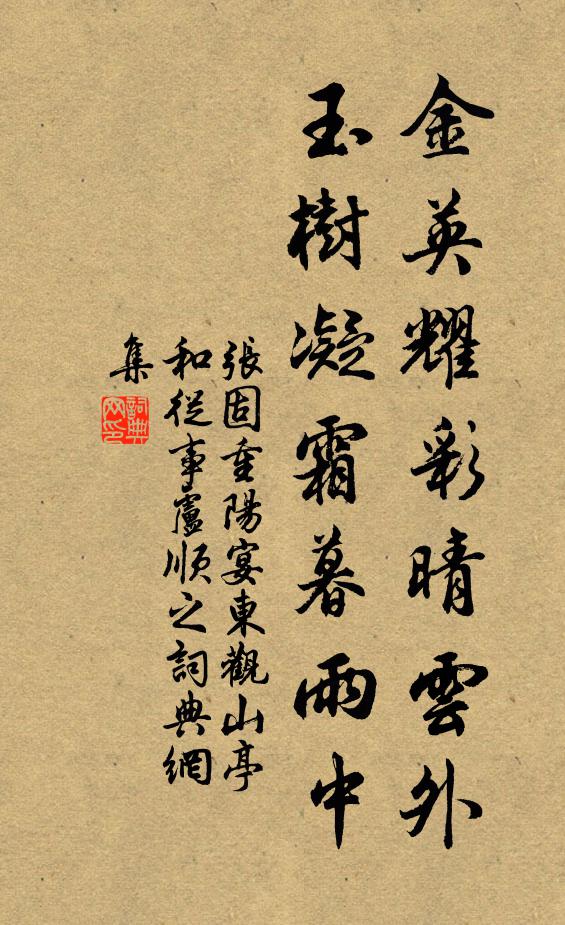 金英耀彩晴雲外
玉樹凝霜暮雨中
張固重陽宴東觀山亭
和從事盧順之詞典網
集
詞典
网印